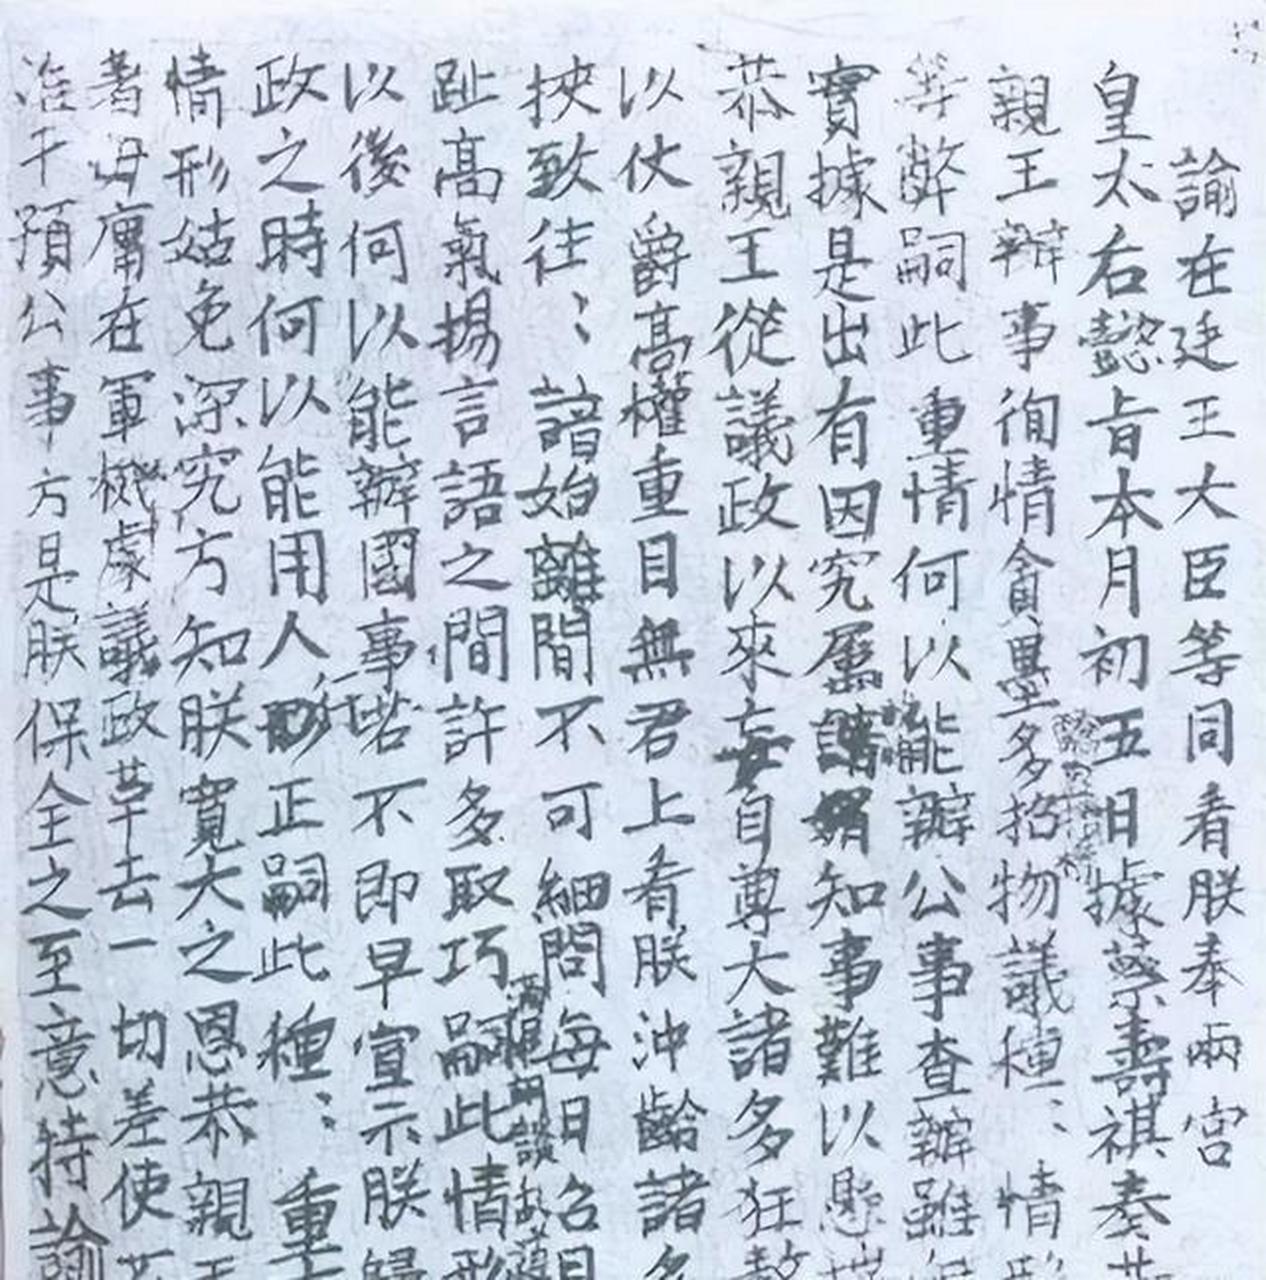 諭在廷王大臣等同看朕奉兩宮
皇太右懿旨本月初五日據蔡壽祺奏
親王辦事徇情貪墨多招物議種〻情形
等弊嗣此重情何以能辦公事查辦雖
實據是出有因究屬知事難以懸
恭親王從議政以來妄自尊大諸多狂敖
以仗爵高權重目無君上看朕沖齡諸多
挾致往〻諳始離間不可細問每日召見
趾高氣揚言語之間許多取巧嗣此情形
以後何以能辦國事若不即早宣示朕歸
政之時何以能用人行正嗣此種〻重大
情形姑免深究方知朕寬大之恩恭親王
著毋庸在軍機處議政革去一切差使不
准干預公事方是朕保全之至意特諭